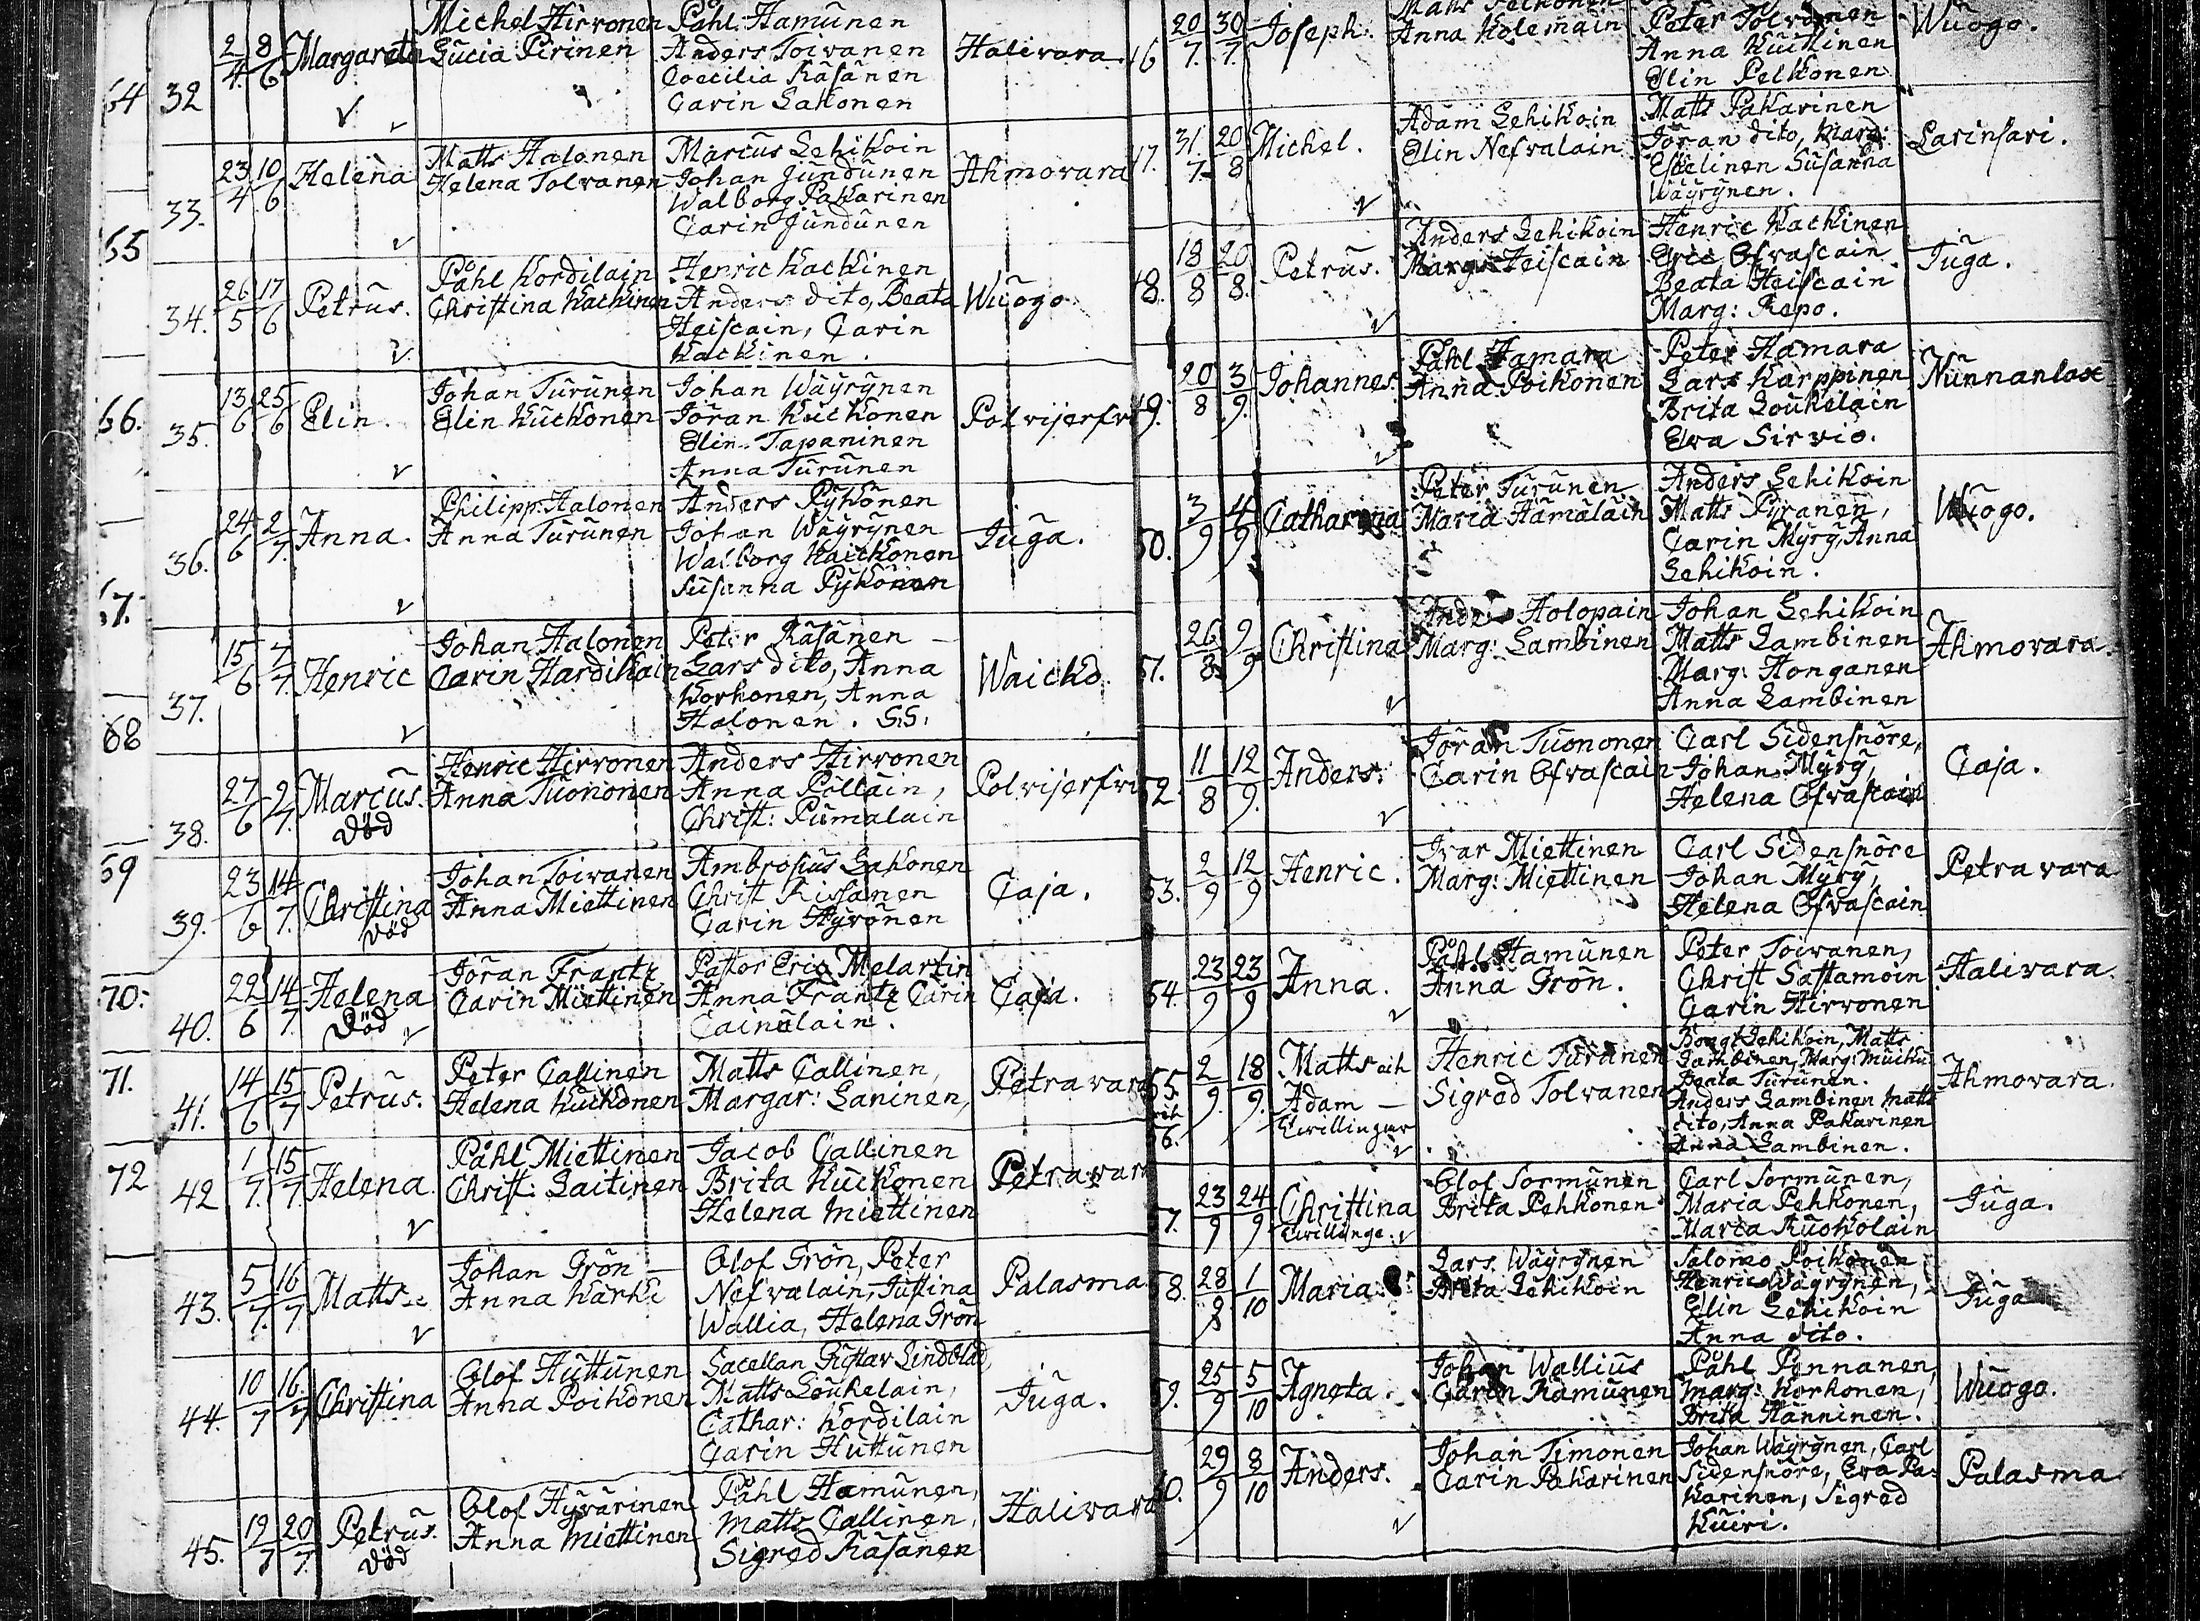 Michel Hirvonen Påhl Hamunen
64 32 2/4 8/6 Margareta Lucia Pirinen Anders Toivanen Halivara
Coecilia Räsänen
Carin Lakonen
33. 23/4 10/6 Helena Matts Halonen Marcus Lehikoin Ahmovara
Helena Tolvanen Johan Jundunen
Walborg Pakarinen
Carin Jundunen
65
34. 26/5 17/6 Petrus. Påhl Kordilain Henric Kackinen Wuogo
Christina Kackinen Anders dito, Beata
Heiscain, Carin
Kackinen.
66. 35. 13/6 25/6 Elin. Johan Turunen Johan Wäyrynen Polvijerfvi
Elin Kuckonen Jöran Kuckonen
Elin Tapaninen
Anna Turunen
36. 24/6 2/7. Anna. Philipp Halonen Anders Pykönen Juga.
Anna Turunen Johan Wäyrynen
Walborg Kaickonen
Susanna Pykönen
67.
37. 15/6 7/7. Henric Johan Halonen Peter Räsänen Waicko
Carin Hardikain Lars dito, Anna
Korhonen, Anna
Halonen. S.S.
68
38. 27/6 2/7. Marcus Henric Hirvonen Anders Hirvonen Polvijerfvi
död Anna Tuononen Anna Pöllain,
Christ: Pumalain
69 39. 23/6 14/7. Christina Johan Toivanen Ambrosius Lakonen Caja.
död Anna Miettinen Christ Rissanen
Carin Hyvönen
70. 40. 22/6 14/7. Helena Jöran Frantz Pastor Eric Melartin Caja.
död Carin Miettinen Anna Frantz Carin
Cainulain.
71. 41. 14/6 15/7 Petrus. Peter Callinen Matts Callinen, Petravara
Helena Kuckonen Margar: Laninen,
72 42 1/7. 15/7. Helena. Påhl Miettinen Jacob Callinen Petravara
Christ: Laitinen Brita Kuckonen
Helena Miettinen
43. 5/7. 16/7 Matts Johan Grön Olof Grön, Peter Palasma
Anna Kärki Nefvalain, Justina
Wallia, Helena Grön
44. 10/7 16/7 Christina Olof Huttunen Sacellan Gustav Lindblad, Juga.
Anna Poikonen Matts Loukelain,
Cathar: Kordilain
Carin Huttunen
45. 19/7 20/7. Petrus. Olof Hyvärinen Påhl Hamunen, Halivara
död Anna Miettinen Matts Callinen,
Sigred Räsänen
Matts Pelkonen
46 20/7. 30/7. Joseph. Anna Kolemain Peter Tolvanen Wuogo.
Anna Kuckinen
Elin Pelkonen
47. 31/7 20/8 Michel. Adam Lehikoin Matts Pakarinen Larinsari.
Elin Nefvalain Jöran dito, Marg:
Eskelinen Susanna
Wäyrynen.
48. 18/8 20/8. Petrus. Anders Lehikoin Henric Kackinen Juga.
Marg: Heiscain Eric Ofvascain
Beata Heiscain
Marg: Repo.
49. 20/8 3/9. Johannes. Påhl Hamara Peter Hamara Nunnanlax
Anna Poikonen Lars Karppinen
Brita Loukelain
Eva Sirviö.
50. 3/9 4/9 Catharina Peter Turunen Anders Lehikoin Wuogo.
Maria Hämäläin Matts Pyranen,
Carin Myry, Anna
Lehikoin.
51. 26/8 9/9 Christina Anders Holopain Johan Lehikoin Ahmovara.
Marg: Lambinen Matts Lambinen
Marg: Honganen
Anna Lambinen
52. 11/8 12/9. Anders. Jöran Tuononen Carl Sidensnöre, Caja.
Carin Ofvascain Johan Myry,
Helena Ofvascain
53. 2/9 12/9 Henric. Ivar Miettinen Carl Sidensnöre Petravara
Marg: Miettinen Johan Myry,
Helena Ofvascain
54. 23/9 23/9 Anna. Påhl Hamunen Peter Toivanen, Halivara.
Anna Grön. Christ Sastamoin
Carin Hirvonen
55. 2/9. 18/9. Matts och Henric Turunen Bengt Lehikoin, Matts Ahmovara.
och 56. Adam Sigred Tolvanen Lambinen, Marg: Muicku
Twillingar Beata Turunen.
Anders Lambinen Matts
dito, Anna Pakarinen
Anna Lambinen.
57. 23/9 24/9 Christina Olof Sormunen Carl Sormunen, Juga.
Twillinge: Brita Pehkonen Maria Pehkonen,
Maria Ruokolain
58. 28/9 1/10 Maria Lars Wäyrynen Salomo Poikonen Juga
Brita Lehikoin Henric Wäyrynen,
Elin Lehikoin
Anna dito.
59. 25/9 5/10 Agneta. Johan Wallius Påhl Pennanen, Wuogo.
Carin Ramunen Marg: Korhonen,
Brita Hänninen.
60. 29/9 8/10 Anders. Johan Timonen Johan Wäyrynen, Carl Palasma
Carin Pakarinen Sidensnöre, Eva Pa:
karinen, Sigred
Kuiri.